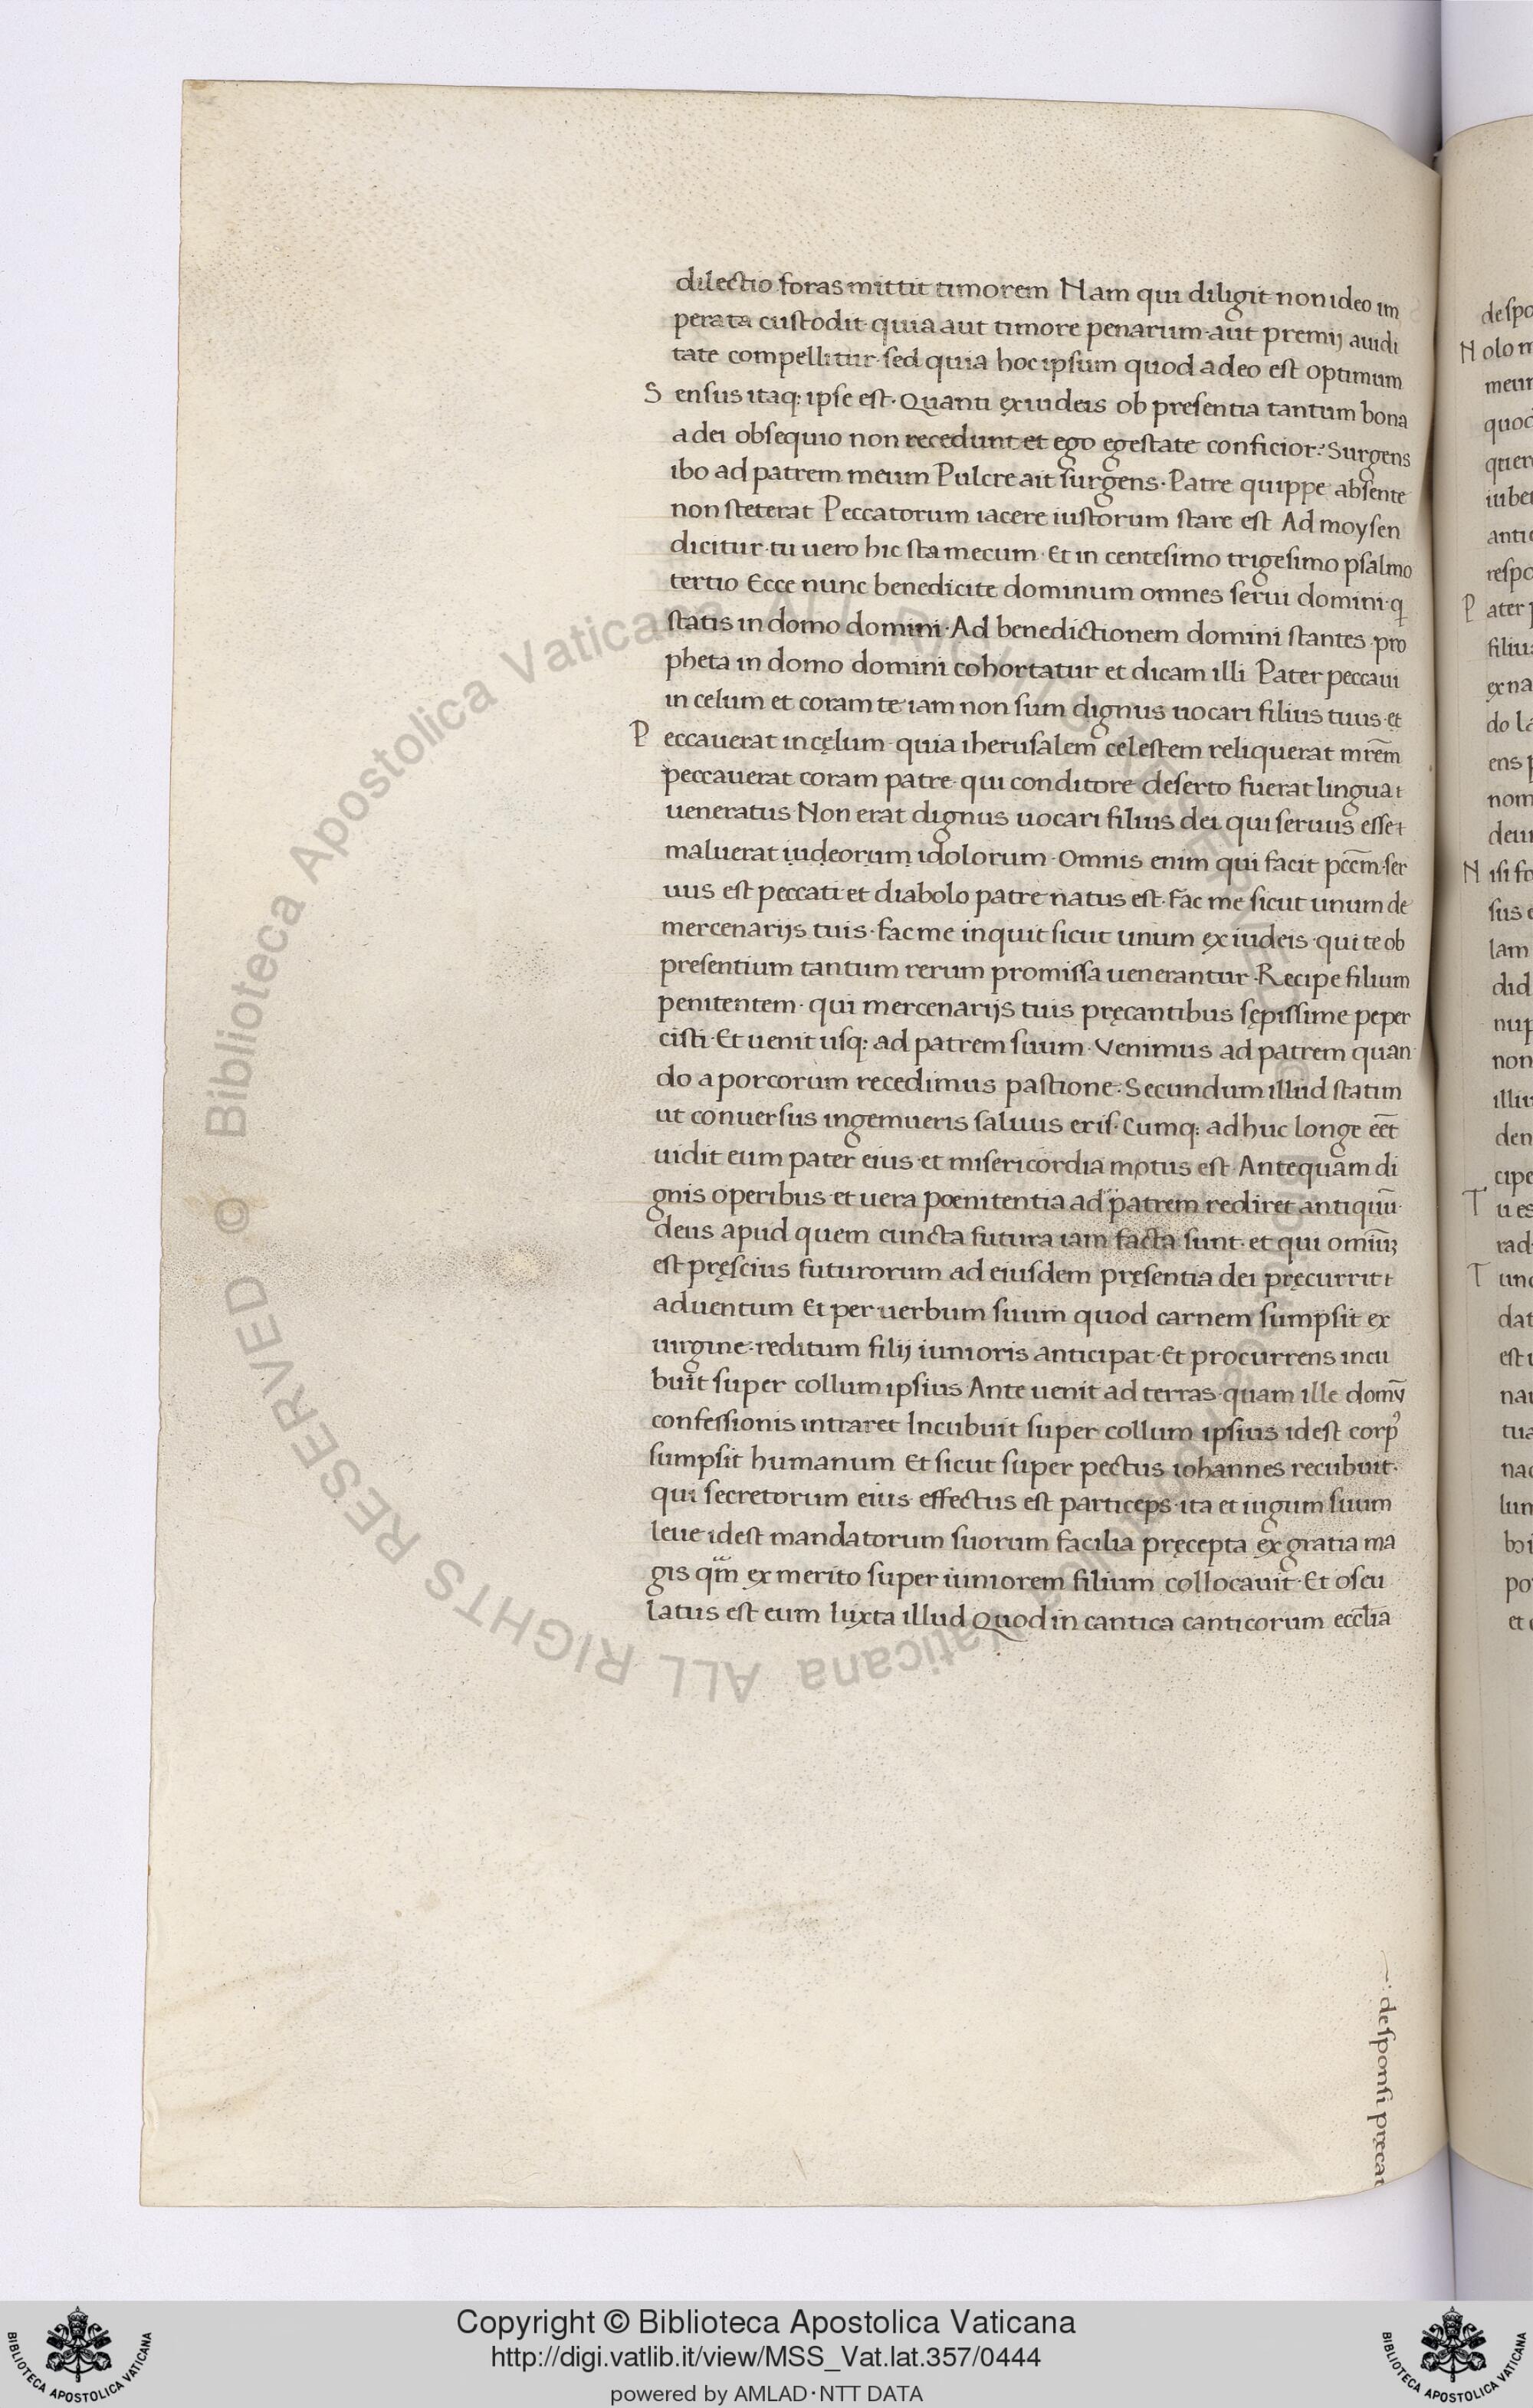 dilectio foras mittit timorem Nam qui diligit non ideo im
perata custodit· quia aut timore penarum· aut premij auidi
tate compellitur· sed quia hoc ipsum quod a deo est optimum
S ensus itaq: ipse est· Quanti ex iudeis ob presentia tantum bona
a dei obsequio non recedunt et ego egestate conficior? Surgens
ibo ad patrem meum Pulcre ait surgens· Patre quippe absente
non steterat Peccatorum iacere iustorum stare est Ad moysen
dicitur· tu uero hic sta mecum· Et in centesimo trigesimo psalmo
tertio Ecce nunc benedicite dominum omnes serui domini· q
statis in domo domini· Ad benedictionem domini stantes· pro
pheta in domo domini cohortatur et dicam illi Pater peccaui
in celum et coram te iam non sum dignus uocari filius tuus· et
P eccauerat in cęlum· quia iherusalem celestem reliquerat mrēm
peccauerat coram patre· qui conditore deserto fuerat lingua t
ueneratus· Non erat dignus uocari filius dei qui seruus esset
maluerat iudeorum idolorum· Omnis enim qui facit pccm̄· ser
uus est peccati et diabolo patre natus est· Fac me sicut unum de
mercenarijs tuis· fac me inquit sicut unum ex iudeis· qui te ob
presentium tantum rerum promissa uenerantur· Recipe filium
penitentem· qui mercenarijs tuis pręcantibus sępissime peper
cisti· Et uenit usq: ad patrem suum· Venimus ad patrem quan
do a porcorum recedimus pastione· Secundum illud statim
ut conuersus ingemueris saluus eris· Cumq: adhuc longe eēt
uidit eum pater eius et misericordia motus est· Antequam di
gnis operibus et uera poenitentia ad patrem rediret antiquū·
deus apud quem cuncta futura iam facta sunt· et qui omiūꝫ
est pręscius futurorum ad eiusdem pręsentia dei pręcurrit t
aduentum Et per uerbum suum quod carnem sumpsit ex
uirgine· reditum filij iunioris anticipat· Et procurrens incu
buit super collum ipsius Ante uenit ad terras· quam ille domū
confessionis intraret Incubuit super collum ipsius idest corpꝰ
sumpsit humanum Et sicut super pectus iohannes recubuit·
qui secretorum eius effectus est particeps· ita et iugum suum
leue idest mandatorum suorum facilia pręcepta ex gratia ma
gis qm̄ ex merito super iuniorem filium collocauit· Et oscu
latus est eum Iuxta illud Quod in cantica canticorum eccl̄ia
de sponsi pręcat
despo
N olo m
meum
quod
quer
iube
anti
respo
P ater p
filiu
ex na
do la
ens p
nom
deu
N isi fo
sus e
lam
did
nup
non
illiu
den
cipe
T u es
rad
T unc
dat
est u
nau
tua
nac
lum
po
et
© Biblioteca Apostolica Vaticana ALL RIGHTS RESERVED
Copyright © Biblioteca Apostolica Vaticana
http://digi.vatlib.it/view/MSS_Vat.lat.357/0444
powered by AMLAD·NTT DATA
BIBLIOTECA APOSTOLICA VATICANA
BIBLIOTECA APOSTOLICA VATICANA